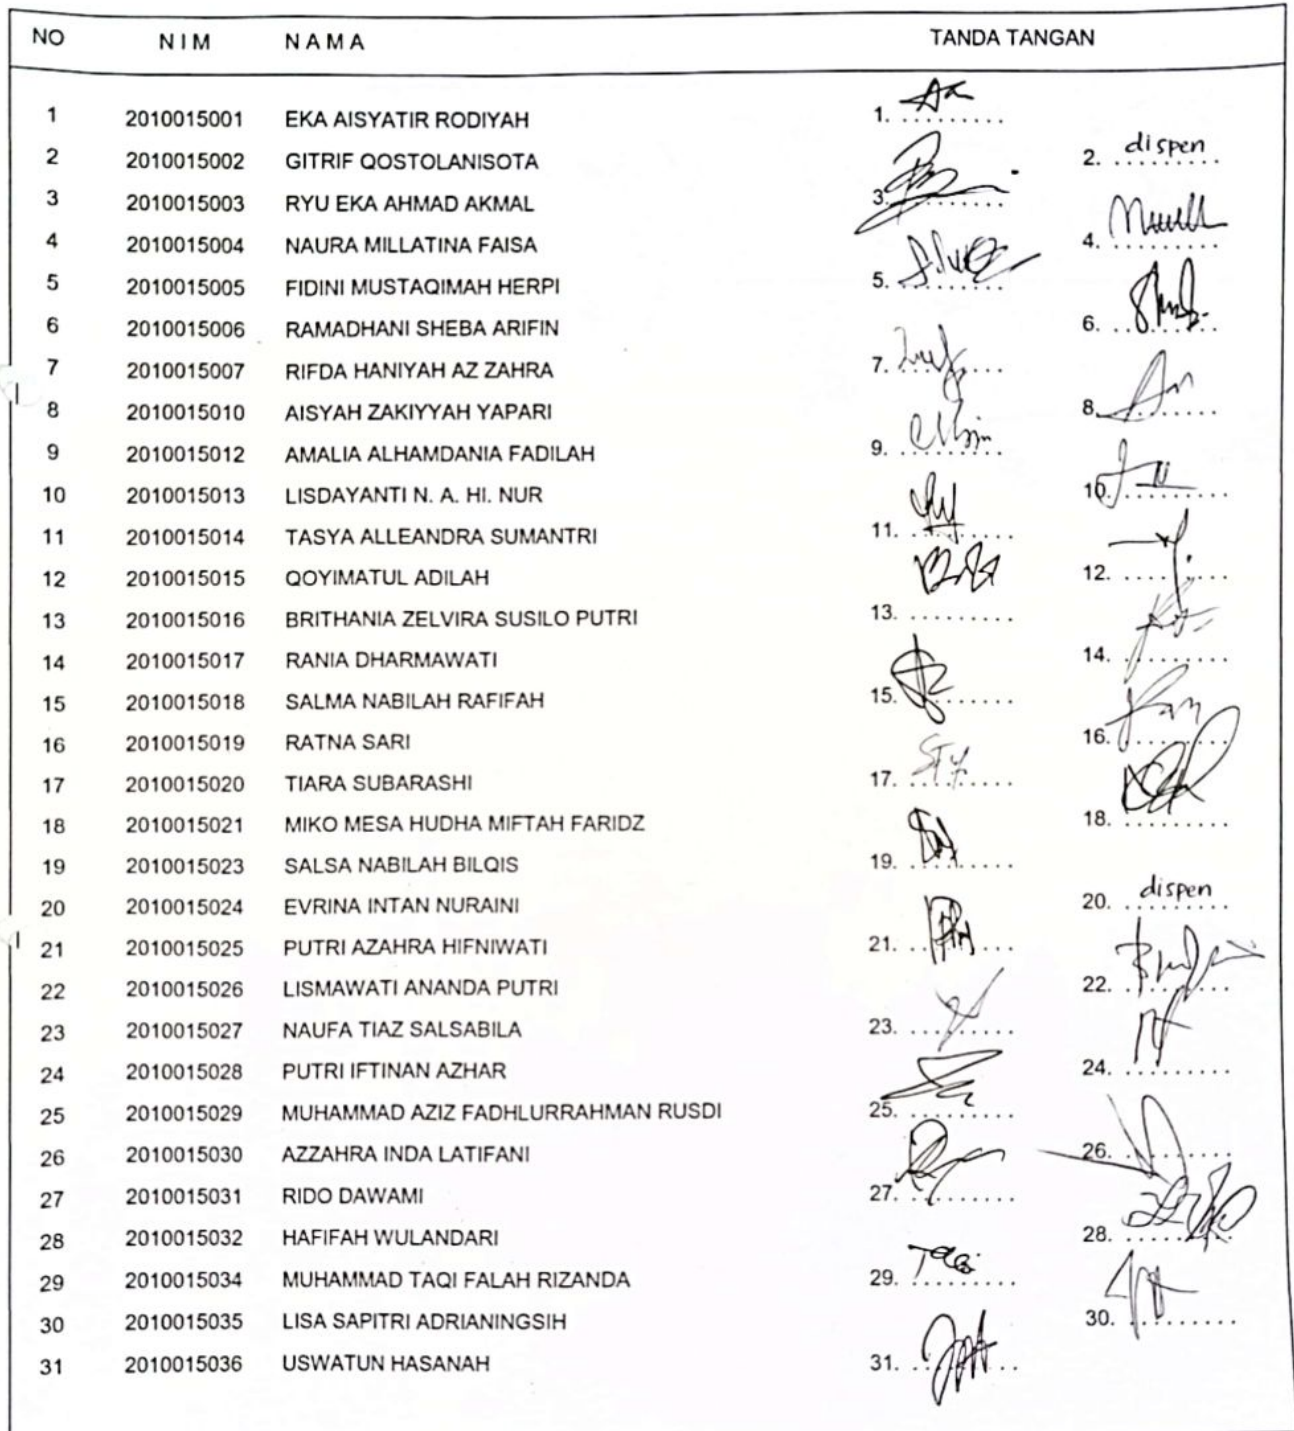 NO NIM NAMA TANDA TANGAN
1 2010015001 EKA AISYATIR RODIYAH 1. ..........
2 2010015002 GITRIF QOSTOLANISOTA 2. dispen
3 2010015003 RYU EKA AHMAD AKMAL 3. ..........
4 2010015004 NAURA MILLATINA FAISA 4. ..........
5 2010015005 FIDINI MUSTAQIMAH HERPI 5. ..........
6 2010015006 RAMADHANI SHEBA ARIFIN 6. ..........
7 2010015007 RIFDA HANIYAH AZ ZAHRA 7. ..........
8 2010015010 AISYAH ZAKIYYAH YAPARI 8. ..........
9 2010015012 AMALIA ALHAMDANIA FADILAH 9. ..........
10 2010015013 LISDAYANTI N. A. HI. NUR 10. ..........
11 2010015014 TASYA ALLEANDRA SUMANTRI 11. ..........
12 2010015015 QOYIMATUL ADILAH 12. ..........
13 2010015016 BRITHANIA ZELVIRA SUSILO PUTRI 13. ..........
14 2010015017 RANIA DHARMAWATI 14. ..........
15 2010015018 SALMA NABILAH RAFIFAH 15. ..........
16 2010015019 RATNA SARI 16. ..........
17 2010015020 TIARA SUBARASHI 17. ..........
18 2010015021 MIKO MESA HUDHA MIFTAH FARIDZ 18. ..........
19 2010015023 SALSA NABILAH BILQIS 19. ..........
20 2010015024 EVRINA INTAN NURAINI 20. dispen
21 2010015025 PUTRI AZAHRA HIFNIWATI 21. ..........
22 2010015026 LISMAWATI ANANDA PUTRI 22. ..........
23 2010015027 NAUFA TIAZ SALSABILA 23. ..........
24 2010015028 PUTRI IFTINAN AZHAR 24. ..........
25 2010015029 MUHAMMAD AZIZ FADHLURRAHMAN RUSDI 25. ..........
26 2010015030 AZZAHRA INDA LATIFANI 26. ..........
27 2010015031 RIDO DAWAMI 27. ..........
28 2010015032 HAFIFAH WULANDARI 28. ..........
29 2010015034 MUHAMMAD TAQI FALAH RIZANDA 29. ..........
30 2010015035 LISA SAPITRI ADRIANINGSIH 30. ..........
31 2010015036 USWATUN HASANAH 31. ..........